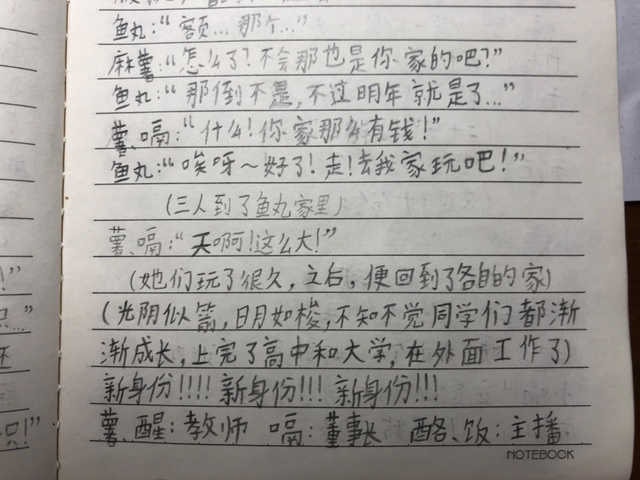 鱼丸:“额…那个…”
麻薯:“怎么了?不会那也是你家的吧?”
鱼丸:“那倒不是,不过明年就是了…”
薯、嗝:“什么!你家那么有钱!”
鱼丸:“唉呀~好了!走!去我家玩吧!”
(三人到了鱼丸家里)
薯、嗝:“天啊!这么大!”
(她们玩了很久,之后,便回到了各自的家)
(光阴似箭,日月如梭,不知不觉同学们都渐
渐成长,上完了高中和大学,在外面工作了)
新身份!!!! 新身份!!! 新身份!!!
薯、醒:教师 嗝:董事长 酪、饭:主播
NOTEBOOK
!”
只…”
只!”